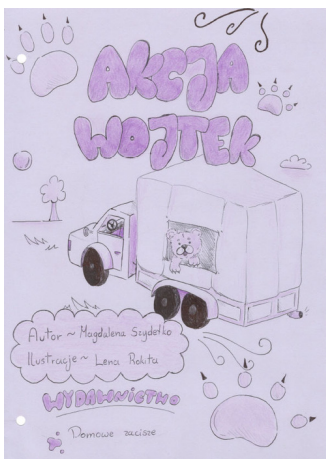 AKCJA
WOJTEK
Autor ~ Magdalena Szydełko
Ilustracje ~ Lena Rokita
WYDAWNICTWO
Domowe zacisze